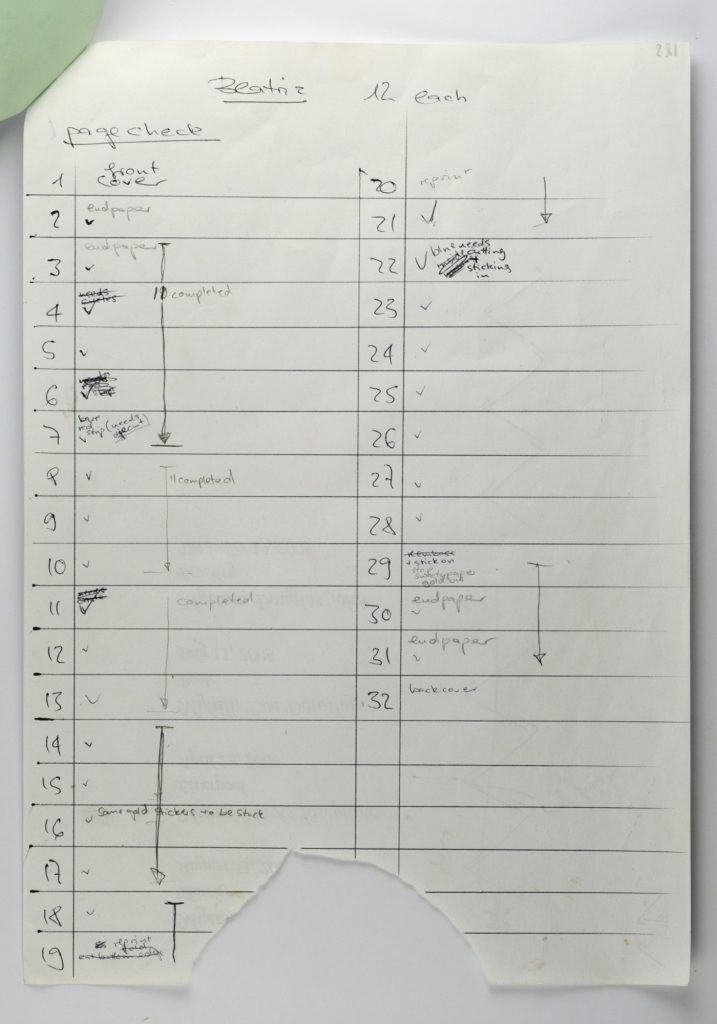 281
Beatriz 12 each
page check
1 front cover
2 endpaper ✓
3 endpaper ✓
4 needs cycles ✓
10 completed
5 ✓
6 ✓
7 strip (needs ✓
8 ✓ 11 completed
9 ✓
10 ✓
11 ✓ completed
12 ✓
13 ✓
14 ✓
15 ✓
16 ✓ some gold stickers to be stuck
17 ✓
18 ✓
19 reprint
cut bottom edge
20 reprint
21 ✓
22 ✓ blue needs
cutting
+
sticking
in
23 ✓
24 ✓
25 ✓
26 ✓
27 ✓
28 ✓
29
+ stick on
strip
gold
30 endpaper ✓
31 endpaper ✓
32 back cover